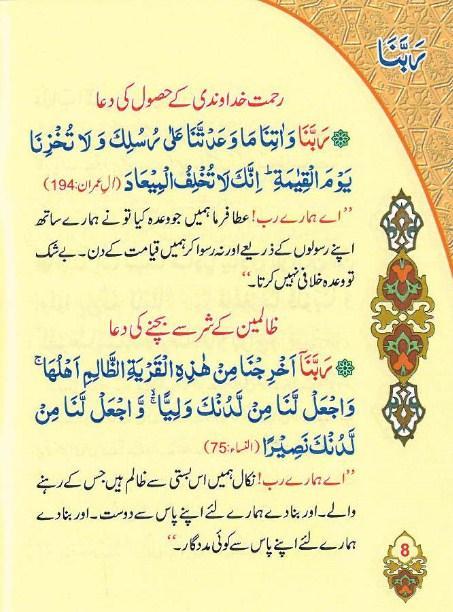 رَبَّنَا
رحمت خداوندی کے حصول کی دعا
رَبَّنَا وَاٰتِنَا مَا وَعَدْتَّنَا عَلٰى رُسُلِكَ وَلَا تُخْزِنَا
يَوْمَ الْقِيٰمَةِ ؕ اِنَّكَ لَا تُخْلِفُ الْمِيْعَادَ (اٰل عمران:194)
’’اے ہمارے رب! عطا فرما ہمیں جو وعدہ کیا تو نے ہمارے ساتھ
اپنے رسولوں کے ذریعے اور نہ رسوا کر ہمیں قیامت کے دن۔ بے شک
تو وعدہ خلافی نہیں کرتا۔‘‘
ظالمین کے شر سے بچنے کی دعا
رَبَّنَآ اَخْرِجْنَا مِنْ هٰذِهِ الْقَرْيَةِ الظَّالِمِ اَهْلُهَا ۚ
وَاجْعَلْ لَّنَا مِنْ لَّدُنْكَ وَلِيًّا ۙ وَّ اجْعَلْ لَّنَا مِنْ
لَّدُنْكَ نَصِيْرًا (النساء:75)
’’اے ہمارے رب! نکال ہمیں اس بستی سے ظالم ہیں جس کے رہنے
والے۔ اور بنا دے ہمارے لئے اپنے پاس سے دوست۔ اور بنا دے
ہمارے لئے اپنے پاس سے کوئی مددگار۔‘‘
8